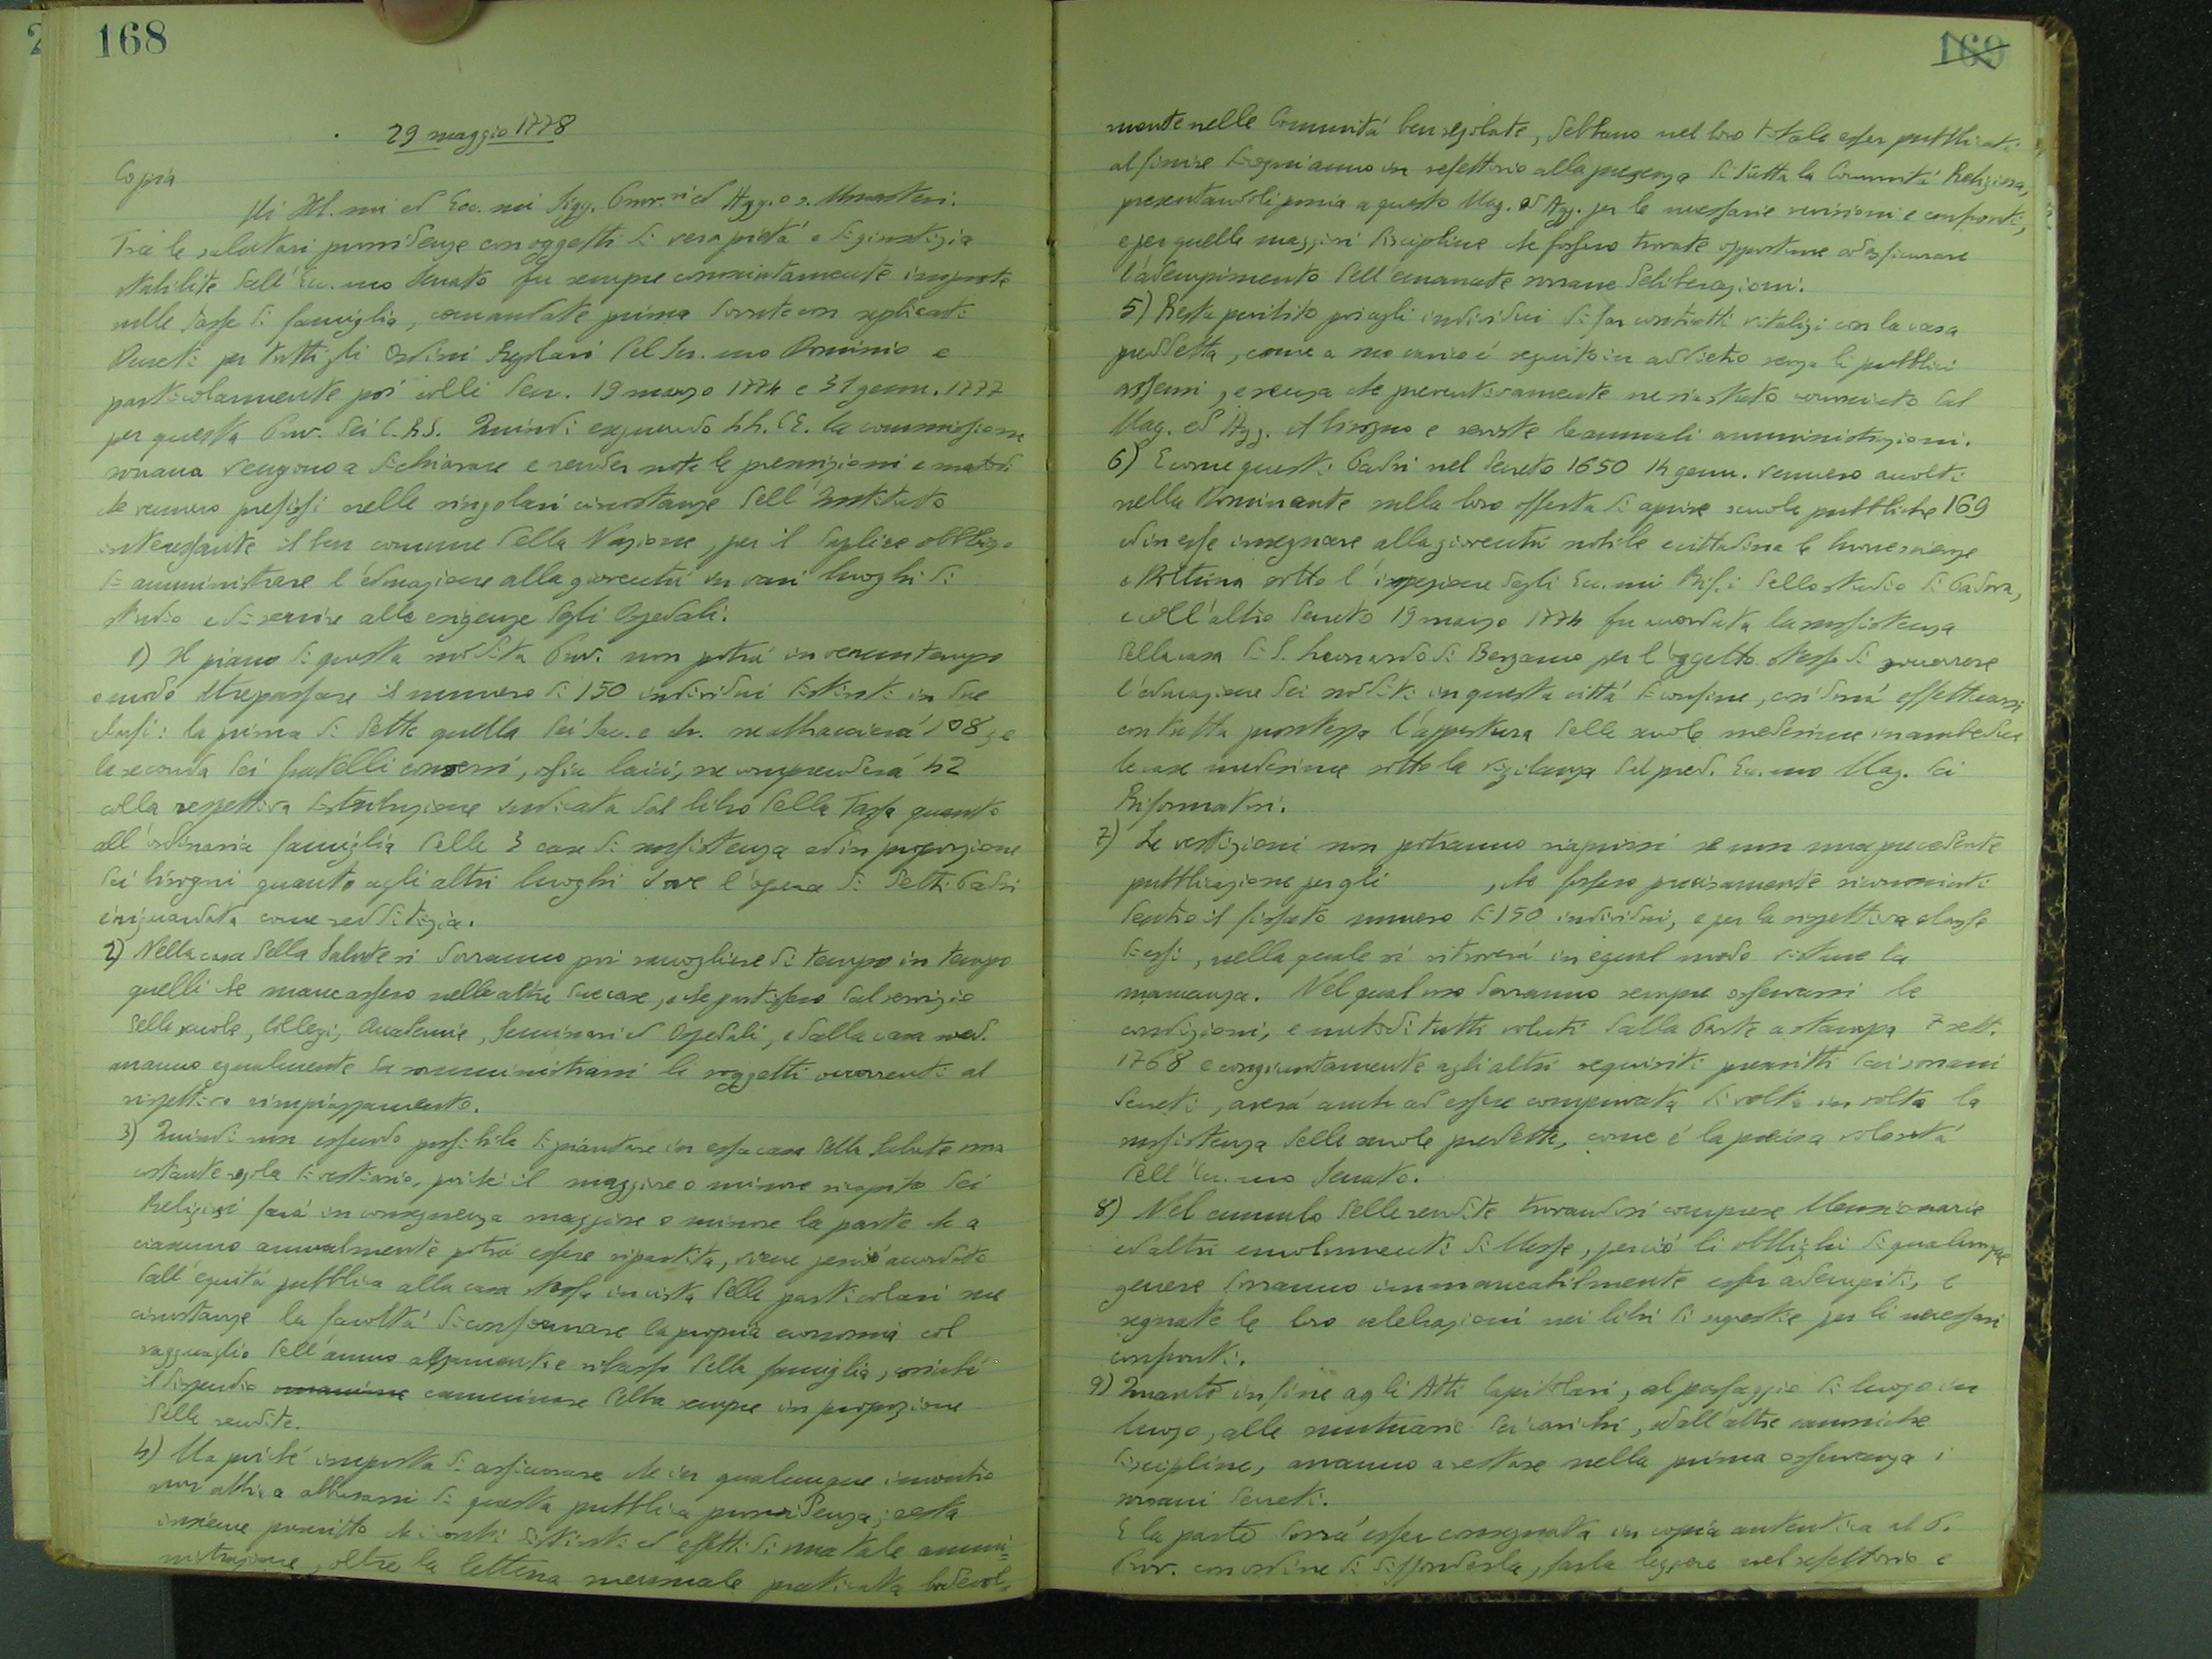 168
29 maggio 1778
Copia
Gli Ill.mi ed Ecc.mi Sigg. Provv.ri ed Agg. o s. Monasteri.
Tra le salutari provvidenze con oggetti di vera pietà e di giustizia
stabilite dall'Ecc.mo Senato fu sempre comunitamente imposte
nelle tasse di famiglia, comandate prima dovute con replicati
Decreti per tutti gli Ordini Regolari del Ser.mo Dominio e
particolarmente poi colli Decr. 19 marzo 1774 e 31 genn. 1777
per questa Prov. dei C.R.S. Quindi eseguendo LL. EE. la commissione
sovrana vengono a dichiarare e render note le prescrizioni e metodi
che vennero prefissi nelle singolari circostanze dell'Instituto
interessante il ben comune della Nazione, per il duplice obbligo
di amministrare l'educazione alla gioventù in vari luoghi di
studio e di servire alle esigenze degli Ospedali.
1) Il piano di questa suddita Prov. non potrà in verun tempo
o modo oltrepassare il numero di 150 individui distinti in due
classi: la prima di dette quella dei Sac. e ch. ne abbraccierà 108, e
la seconda dei fratelli conversi, ossia laici, ne comprenderà 42
colla respettiva distribuzione indicata dal libro della Tassa quanto
all'ordinaria famiglia delle 3 case di sussistenza ed in proporzione
dei bisogni quanto agli altri luoghi dove l'opera di detti Padri
è riguardata come redditizia.
2) Nella casa della Salute si dovranno poi raccogliere di tempo in tempo
quelli che mancassero nelle altre due case, e che partissero dal servizio
delle scuole, Collegi, Accademie, Seminari ed Ospedali, e dalla casa med.
avranno egualmente da somministrarsi li soggetti occorrenti al
rispettivo rimpiazzamento.
3) Quindi non essendo possibile di piantare in essa casa della Salute una
costante regola di vestiario, poiché il maggiore o minore ricapito dei
Religiosi farà in conseguenza maggiore o minore la parte che a
ciascuno annualmente potrà essere ripartita, viene perciò accordato
dall'equità pubblica alla casa stessa in vista delle particolari sue
circostanze la facoltà di conformare la propria economia col
ragguaglio dell'annuo aumento e ribasso della famiglia, cosicché
il dispendio camminare debba sempre in proporzione
delle rendite.
4) Ma poiché importa di assicurare che in qualunque incontro
non abbia abusarsi di questa pubblica provvidenza, resta
insieme prescritto che i conti distinti ed esatti di una tale ammi=
nistrazione, oltre la lettura mensuale praticata lodevol-
169
mente nelle Comunità ben regolate, debbano nel loro totale esser pubblicati
al finire d'ogni anno in refettorio alla presenza di tutta la Comunità Religiosa,
presentandoli pria a questo Mag. ed Agg. per le necessarie revisioni e confronti,
e per quelle maggiori discipline che fossero trovate opportune ad assicurare
l'adempimento dell'emanate sovrane deliberazioni.
5) Resta proibito poi agli individui di far contratti vitalizi con la casa
predetta, come a suo carico è seguito in addietro senza li pubblici
assensi, e senza che preventivamente ne sia stato conosciuto dal
Mag. ed Agg. il bisogno e scorte le annuali amministrazioni.
6) E come questi Padri nel Decreto 1650 14 genn. vennero accolti
nella Dominante sulla loro offerta di aprire scuole pubbliche 169
ed in esse insegnare alla gioventù nobile e cittadina le buone scienze
e Dottrina sotto l'ispezione degli Ecc.mi Rif.i dello studio di Padova,
e coll'altro Decreto 19 marzo 1774 fu accordata la sussistenza
della casa di S. Leonardo di Bergamo per l'oggetto stesso di promovere
l'educazione dei sudditi in questa città di confine, così dovrà effettuarsi
con tutta prontezza l'appertura delle scuole medesime in ambedue
le case medesime sotto la vigilanza del pred. Ecc.mo Mag. dei
Riformatori.
7) Le vestizioni non potranno riaprirsi se non una precedente
pubblicazione per gli , che fossero precisamente riconosciuti
dentro il fissato numero di 150 individui, e per la rispettiva classe
di essi, nella quale si ritroverà in egual modo la
mancanza. Nel qual caso dovranno sempre osservarsi le
condizioni, e metodi tutti voluti dalla Parte a stampa 7 sett.
1768 e congiuntamente agli altri requisiti prescritti dai sovrani
Decreti, averà anche ad essere comprovata di volta in volta la
sussistenza delle scuole predette, come è la precisa volontà
dell'Ecc.mo Senato.
8) Nel cumulo delle rendite trovandosi comprese Mansionarie
ed altri emolumenti di Messe, perciò li obblighi di qualunque
genere dovranno immancabilmente esser adempiti, e
segnate le loro celebrazioni nei libri di sagrestia per li necessari
confronti.
9) Quanto infine agli Atti Capitolari, al passaggio di luogo in
luogo, alle mutuazioni dei carichi, ed all'altre canoniche
discipline, avranno a restare nella prima osservanza i
sovrani Decreti.
E la parte dovrà esser consegnata in copia autentica al P.
Prov. con ordine di diffonderla, farla leggere nel refettorio e